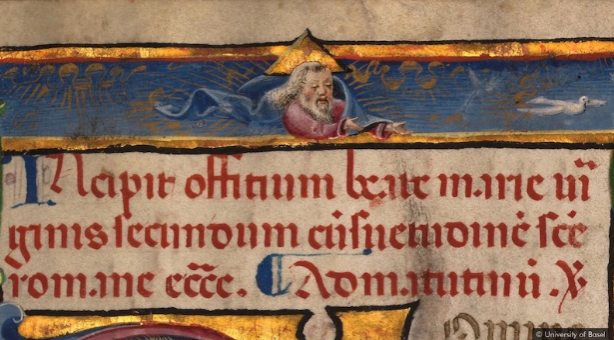 Incipit offitium beate marie uir
ginis secundum cōsuetudinē scē
romane eccē. Ad matutinū. ℣.
© University of Basel